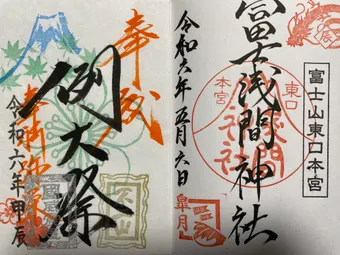 富士山東口本宮
冨士浅間神社
東口
本宮
令和六年五月六日
皐月
奉拝
例大祭
令和六年甲辰